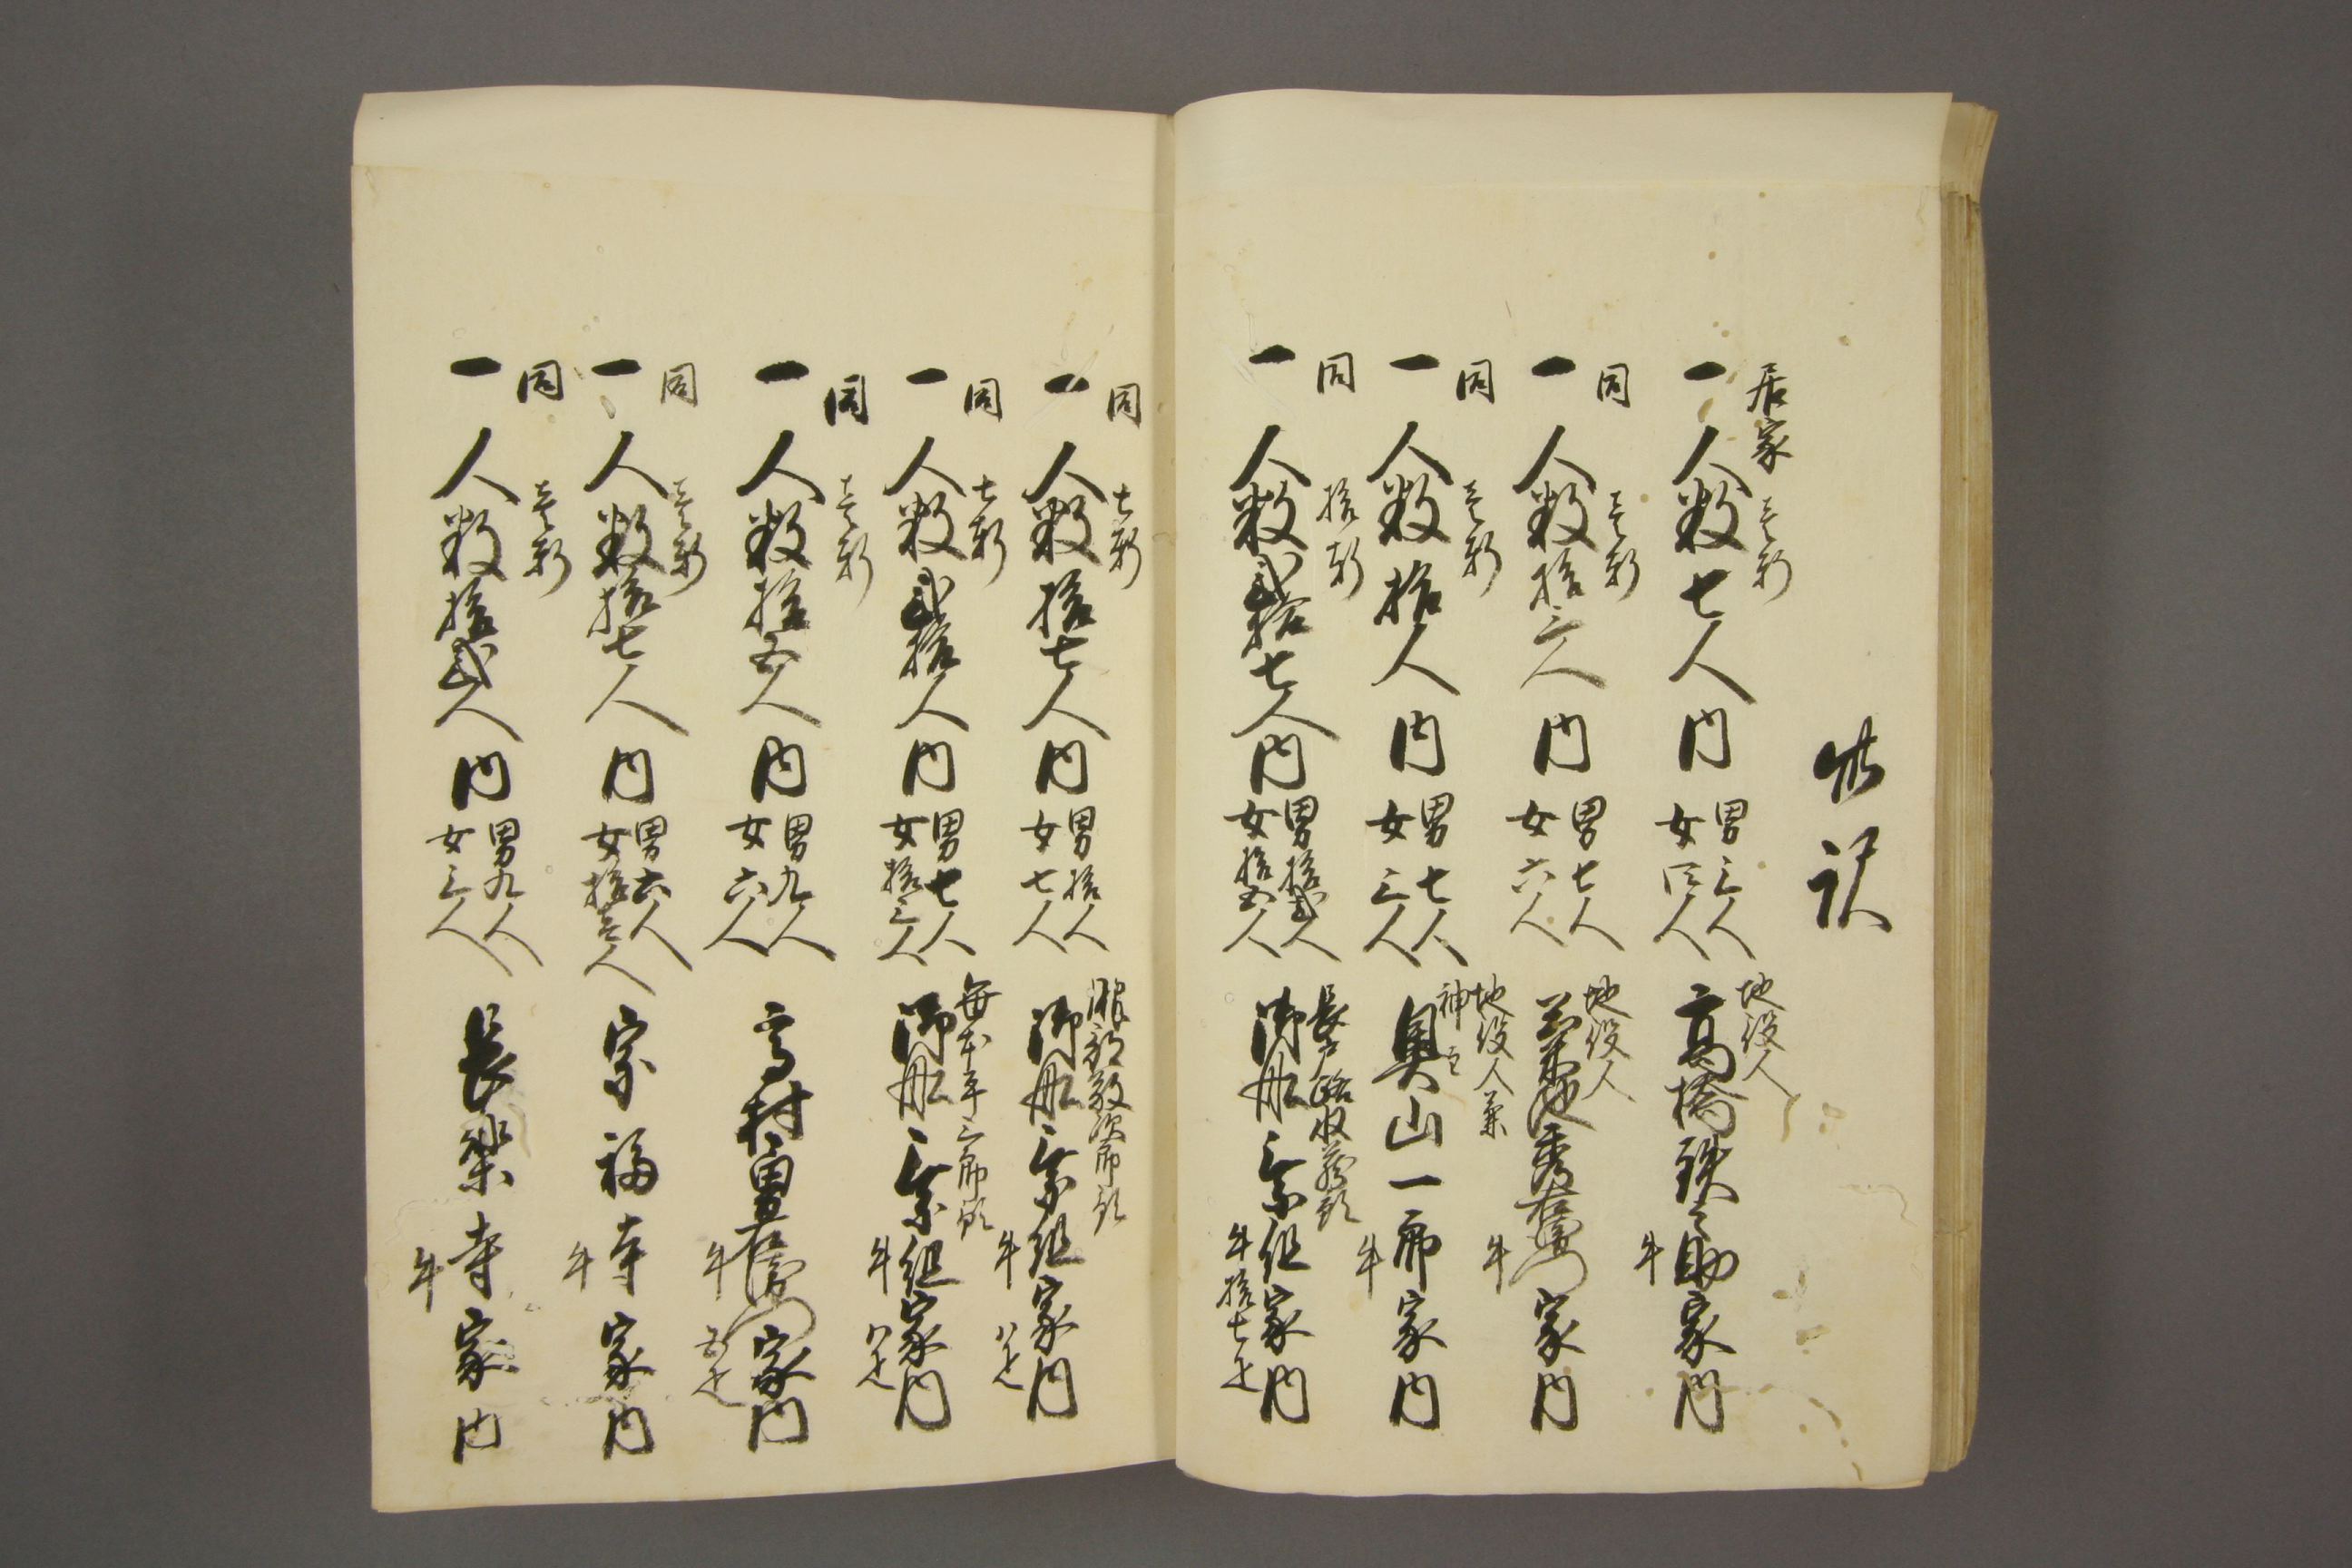 居家 壱軒
一 人数七人 内 男三人 女四人 地役人 高橋鉄之助家内 牛
同 壱軒
一 人数拾三人 内 男七人 女六人 地役人 菊池秀右衛門家内 牛
同 壱軒
一 人数拾人 内 男七人 女三人 地役人兼 神主 奥山一郎家内 牛
同 拾軒
一 人数弐拾七人 内 男拾弐人 女拾五人 御船宗組家内 牛拾七疋
同 七軒
一 人数拾七人 内 男拾人 女七人 服部敬次郎 御船宗組家内 牛八疋
同 七軒
一 人数弐拾人 内 男七人 女拾三人 御船宗組家内 牛八疋
同 壱軒
一 人数拾五人 内 男九人 女六人 高村勇右衛門家内 牛五疋
同 壱軒
一 人数拾七人 内 男六人 女拾壱人 宗福寺家内 牛
同 壱軒
一 人数拾弐人 内 男九人 女三人 長楽寺家内 牛